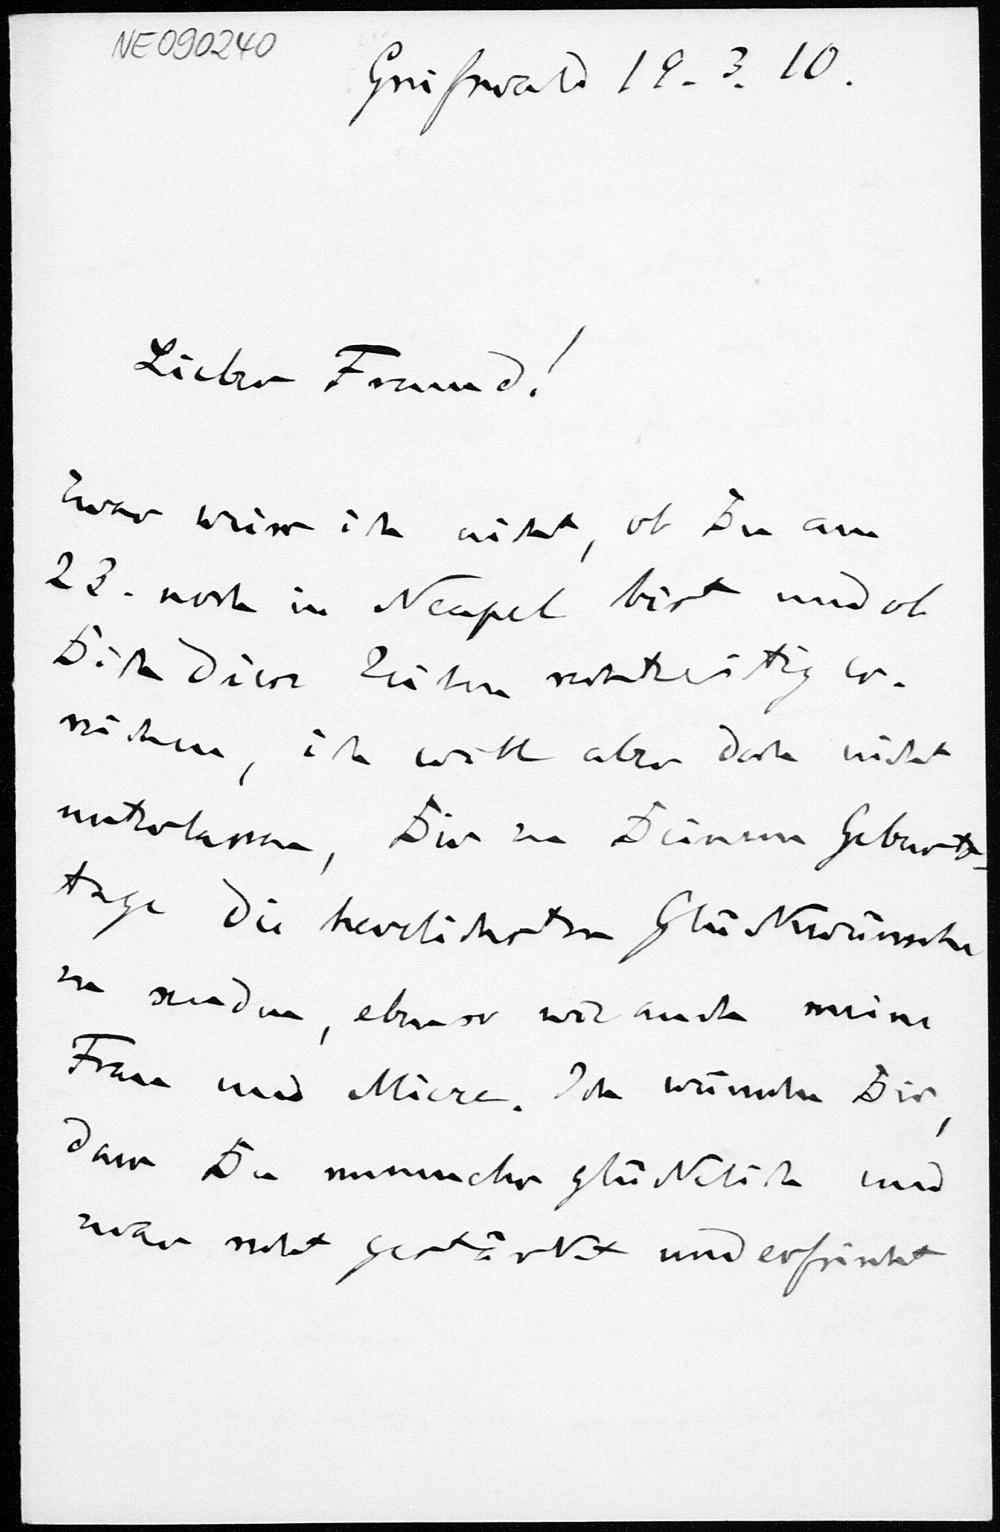 NE090240
Greifswald 19.3.10.
Lieber Freund!
Zwar weiss ich nicht, ob Du am
23. noch in Neapel bist und ob
Dich diese Zeilen rechtzeitig er-
reichen, ich will aber doch nicht
unterlassen, Dir zu Deinem Geburts-
tage die herzlichsten Glückwünsche
zu senden, ebenso wie auch meine
Frau und Mieze. Ich wünsche Dir,
dass Du nunmehr glücklich und
zwar recht gestärkt und erfrischt